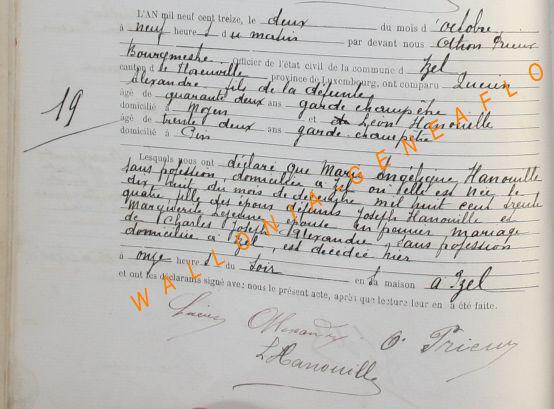 L'AN mil neuf cent treize, le deux du mois d'octobre,
à neuf heures du matin par devant nous Othon Prieur
Bourgmestre, Officier de l'état civil de la commune d'Izel
canton de Florenville, province de Luxembourg, ont comparu Lucien
Alexandre, fils de la défunte
âgé de quarante deux ans garde champêtre
domicilié à Moyen et Léon Hanouille
âgé de trente deux ans garde champêtre
domicilié à Pin
19
Lesquels nous ont déclaré que Marie Angélique Hanouille
sans profession, domiciliée à Izel où elle est née le
dix huit du mois de décembre mil huit cent trente
quatre fille des époux défunts Joseph Hanouille et
Marguerite Lejeune, épouse en premier mariage
de Charles Joseph Alexandre, sans profession
domicilié à Izel est décédée hier
à onze heures du soir en sa maison à Izel
et ont les déclarants signé avec nous le présent acte, après que lecture leur en a été faite.
Lucien Alexandre O. Prieur
L Hanouille
WALLONIA-GENEAFLO